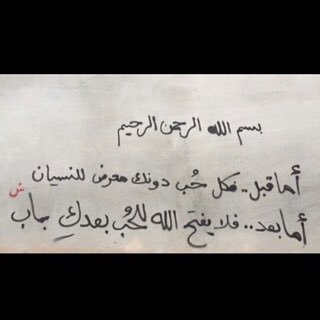 بسم الله الرحمن الرحيم
أما قبل.. فكل حُب دونك معرض للنسيان
أما بعد.. فلا يفتح الله للحُب بعدكِ باب
ش